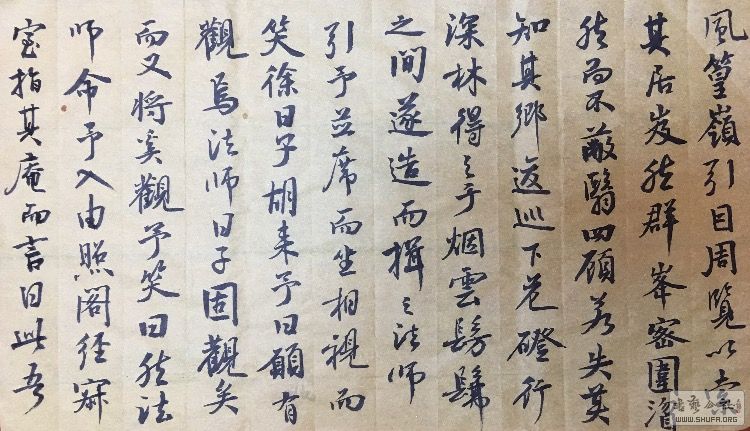 風篁嶺引目周覽以索
其居岌然群峯密圍溍
然而不蔽翳四顧若失莫
知其鄉逡巡下危磴行
深林得之于烟雲髣髴
之間遂造而揖之法師
引予並席而坐相視而
笑徐曰子胡来予曰願有
觀焉法師曰子固觀矣
而又将奚觀予笑曰然法
師命予入由照閣經寂
室指其庵而言曰此吾
WWW.SHUFA.ORG